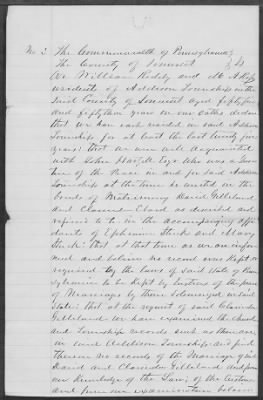 No 3 The Commonwealth of Pennsylvania
The County of Somerset
We William and
residents of Addison Township in the
said County of Somerset aged fifty five
and fifty three years on our oaths declare
that we have each resided in said Addison
Township for at least the last twenty five
years: that we were well acquainted
with John Esqr who was a Jus-
tice of the Peace in and for said Addison
Township at the time he united in the
bonds of Matrimony David Gilleland
and Clarinda Clard as described and
referred to in the accompanying affi-
davits of Ephraim and Mary
that at that time as we are infor-
med and believe no record was kept or
required by the laws of said State of Penn
sylvania to be kept by Justices of the peace
of Marriages by them in said
State: that at the request of said Clarinda
Gilleland we have examined the church
and Township records such as there are,
in said Addison Township and find
therein no records of the Marriage of said
David and Clarinda Gilleland and from
our knowledge of the Law, of the custom
and from our examination believe